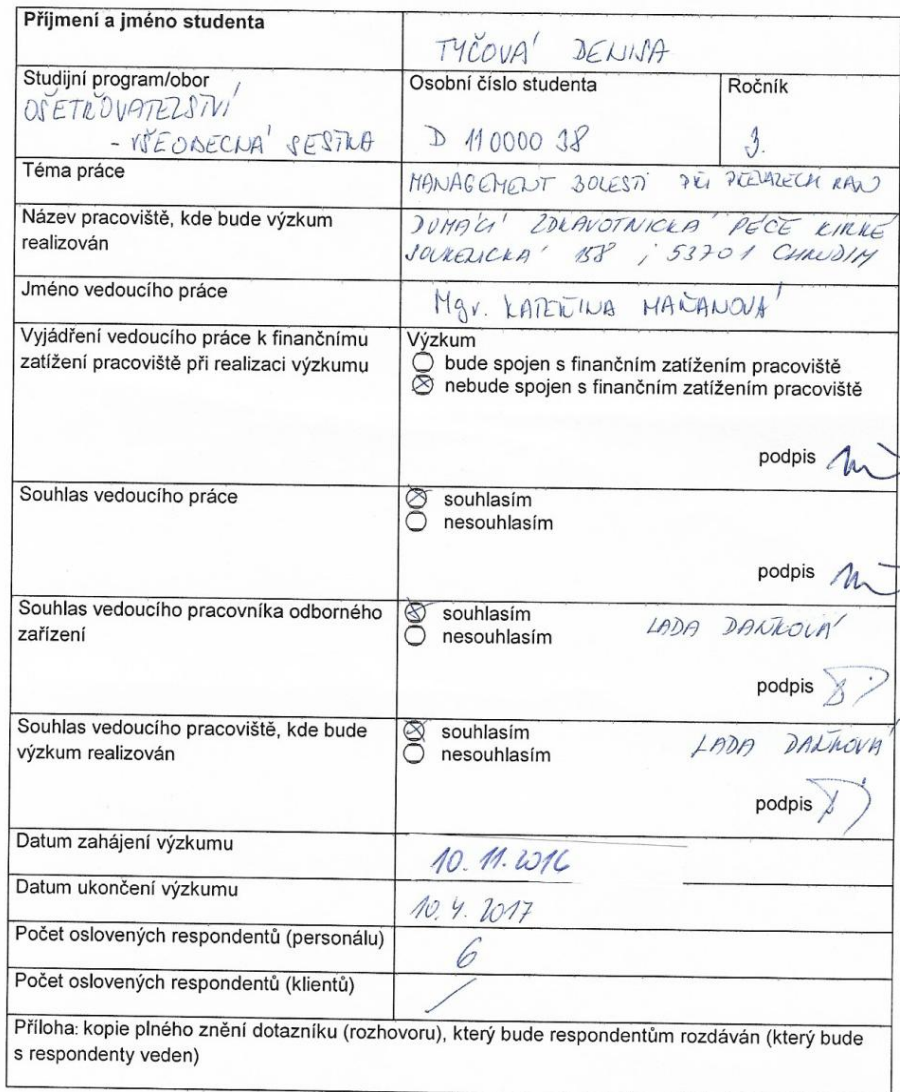 Příjmení a jméno studenta
TYČOVÁ DENISA
Studijní program/obor
OŠETŘOVATELSTVÍ
- VŠEOBECNÁ SESTRA
Osobní číslo studenta
D 1100038
Ročník
3.
Téma práce
MANAGEMENT BOLESTI PŘI PŘEVAZECH RAN
Název pracoviště, kde bude výzkum
realizován
DOMÁCÍ ZDRAVOTNICKÁ PÉČE
158 ; 53701 CHRUDIM
Jméno vedoucího práce
Mgr. KATEŘINA MAŇANOVÁ
Vyjádření vedoucího práce k finančnímu
zatížení pracoviště při realizaci výzkumu
Výzkum
bude spojen s finančním zatížením pracoviště
nebude spojen s finančním zatížením pracoviště
podpis
Souhlas vedoucího práce
souhlasím
nesouhlasím
podpis
Souhlas vedoucího pracovníka odborného
zařízení
souhlasím
nesouhlasím LADA DAŇKOVÁ
podpis
Souhlas vedoucího pracoviště, kde bude
výzkum realizován
souhlasím
nesouhlasím LADA DAŇKOVÁ
podpis
Datum zahájení výzkumu
10. 11. 2016
Datum ukončení výzkumu
10. 4. 2017
Počet oslovených respondentů (personálu)
6
Počet oslovených respondentů (klientů)
/
Příloha: kopie plného znění dotazníku (rozhovoru), který bude respondentům rozdáván (který bude
s respondenty veden)